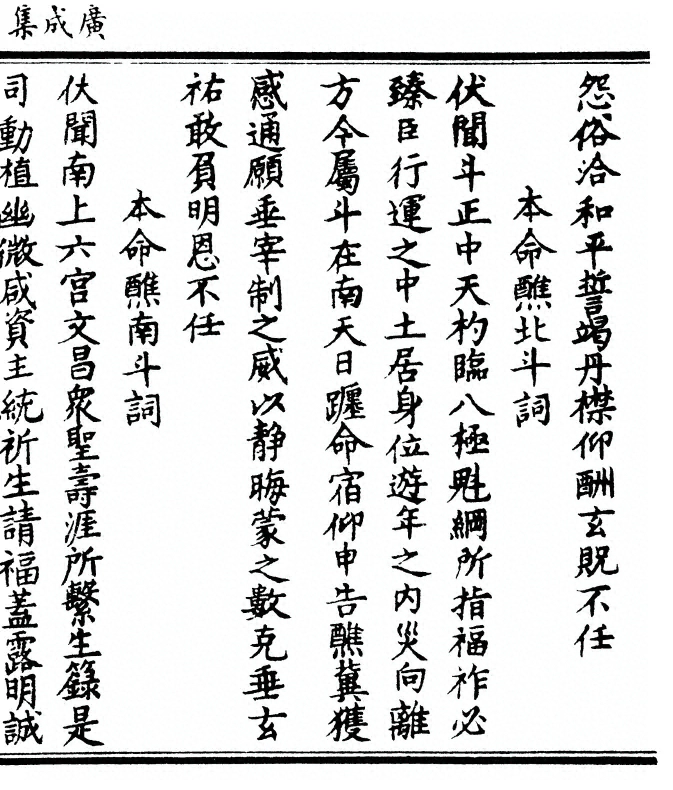 廣成集
怨俗洽和平誓竭丹襟仰酬玄貺不任
本命醮北斗詞
伏聞斗正中天杓臨八極魁綱所指福祚必
臻臣行運之中土居身位遊年之内災向離
方今屬斗在南天日躔命宿仰申告醮兾獲
感通願垂宰制之威以静晦蒙之數克垂玄
祐敢負明恩不任
本命醮南斗詞
伏聞南上六宫文昌衆聖壽涯所繫生籙是
司動植幽微咸資主統祈生請福蓋露明誠